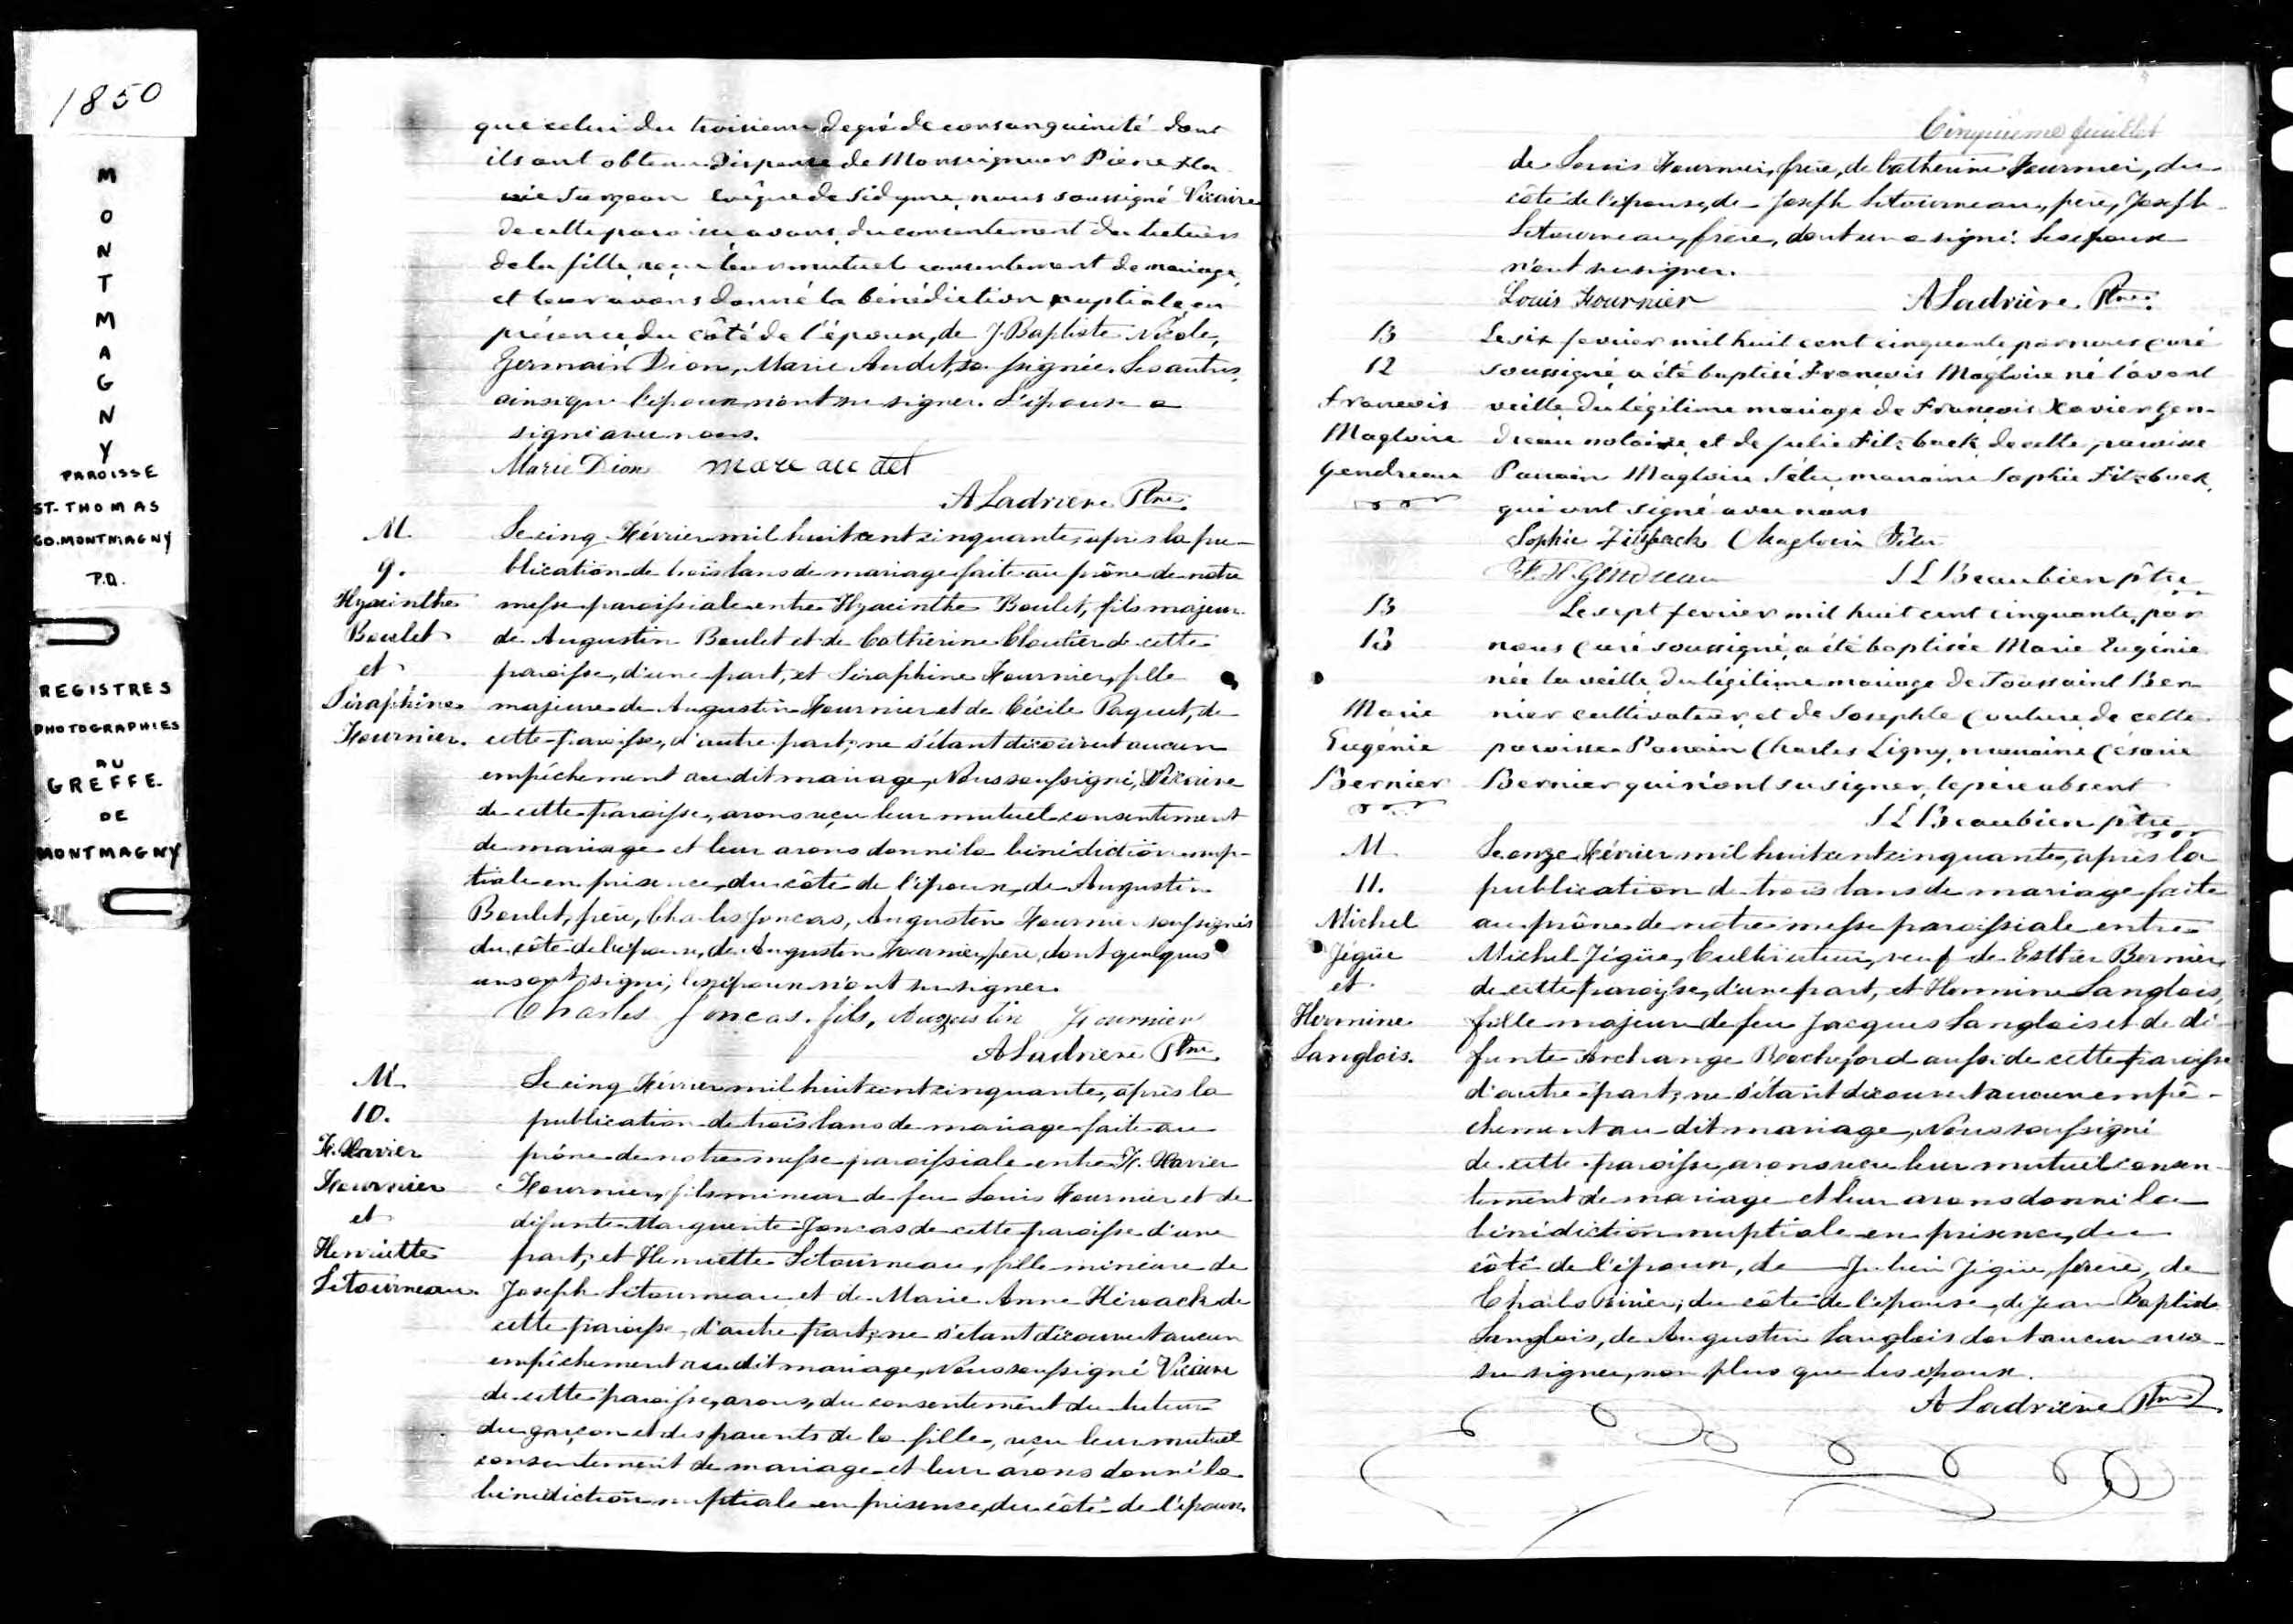 1850
MONTMAGNY
PAROISSE
ST-THOMAS
CO.MONTMAGNY
P.Q.
REGISTRES
PHOTOGRAPHIES
AU
GREFFE
DE
MONTMAGNY
que celui du troisieme degré de consanguinité dont
ils ont obtenu dispense de Monseigneur Pierre Fla-
vie Turgeon évêque de Sidyme, nous soussigné Vicaire
de cette paroisse avons, du consentement du tuteur
de la fille, reçu leur mutuel consentement de mariage,
et leur avons donné la bénédiction nuptiale en
présence, du côté de l'époux, de J. Baptiste Nicole,
Germain Dion, Marie Audet, soussignée. Les autres,
ainsi que l'époux n'ont su signer. L'épouse a
signé avec nous.
Marie Dion mare au det
A Ladrière Ptre.
M.
9.
Hyacinthe
Boulet
et
Séraphine
Fournier.
Le cinq Février mil huit cent cinquante, après la pu-
blication de trois bans de mariage faite au prône de notre
messe paroissiale entre Hyacinthe Boulet, fils majeur
de Augustin Boulet et de Catherine Cloutier de cette
paroisse, d'une part, et Séraphine Fournier, fille
majeure de Augustin Fournier et de Cécile Paquet, de
cette paroisse, d'autre part; ne s'étant découvert aucun
empêchement au dit mariage, Nous soussigné, Vicaire
de cette paroisse, avons reçu leur mutuel consentement
de mariage et leur avons donné la bénédiction nup-
tiale en présence, du côté de l'époux, de Augustin
Boulet, père, Charles Joncas, Augustin Fournier soussignés
du côté de l'épouse, de Augustin Fournier, père, dont quelques
uns ont signé; les époux n'ont su signer.
Charles Joncas. fils, Augustin Fournier
A Ladrière Ptre
M.
10.
F. Xavier
Fournier
et
Henriette
Létourneau.
Le cinq Février mil huit cent cinquante, après la
publication de trois bans de mariage faite au
prône de notre messe paroissiale entre F. Xavier
Fournier, fils mineur de feu Louis Fournier et de
défunte Marguerite Joncas de cette paroisse d'une
part; et Henriette Létourneau, fille mineure de
Joseph Létourneau et de Marie Anne Kéroack de
cette paroisse, d'autre part; ne s'étant découvert aucun
empêchement au dit mariage, Nous soussigné Vicaire
de cette paroisse, avons, du consentement du tuteur
du garçon et des parents de la fille, reçu leur mutuel
consentement de mariage et leur avons donné la
bénédiction nuptiale en présence, du côté de l'époux,
Cinquième feuillet
de Louis Fournier, frère, de Catherine Fournier, du
côté de l'épouse, de Joseph Létourneau, père, Joseph
Létourneau, frère, dont un a signé. Les époux
n'ont su signer.
Louis Fournier A Ladrière Ptre.
B
12
Francois
Magloire
Gendreau
Le six fevrier mil huit cent cinquante par nous curé
soussigné, a été baptisé François Magloire né l'avant
veille du légitime mariage de François Xavier Gen-
dreau notaire, et de Julie Fitzback de cette paroisse
Parrain Magloire Têtu, marraine Sophie Fitzback,
qui ont signé avec nous
Sophie Fitzback Magloire Têtu
F. X. Gendreau J L Beaubien ptre
B
13
Marie
Eugénie
Bernier
Le sept fevrier mil huit cent cinquante, par
nous curé soussigné, a été baptisée Marie Eugénie
née la veille du légitime mariage de Toussaint Ber-
nier cultivateur, et de Josephte Couture de cette
paroisse. Parrain Charles Ligny, marraine Césarie
Bernier qui n'ont su signer, le père absent
J L Beaubien ptre
M
11.
Michel
Jégüe
et
Hermine
Langlois.
Le onze Février mil huit cent cinquante, après la
publication de trois bans de mariage faite
au prône de notre messe paroissiale entre
Michel Jégüe, Cultivateur, veuf de Esther Bernier
de cette paroisse, d'une part, et Hermine Langlois,
fille majeure de feu Jacques Langlois et de dé-
funte Archange Rocheford aussi de cette paroisse
d'autre part; ne s'étant découvert aucun empê-
chement au dit mariage, Nous soussigné
de cette paroisse, avons reçu leur mutuel consen-
tement de mariage et leur avons donné la
bénédiction nuptiale en présence, du
côté de l'époux, de Julien Jégüe, frère, de
Charles; du côté de l'épouse, de Jean Baptiste
Langlois, de Augustin Langlois dont aucun n'a
su signer, non plus que les époux.
A Ladrière Ptre